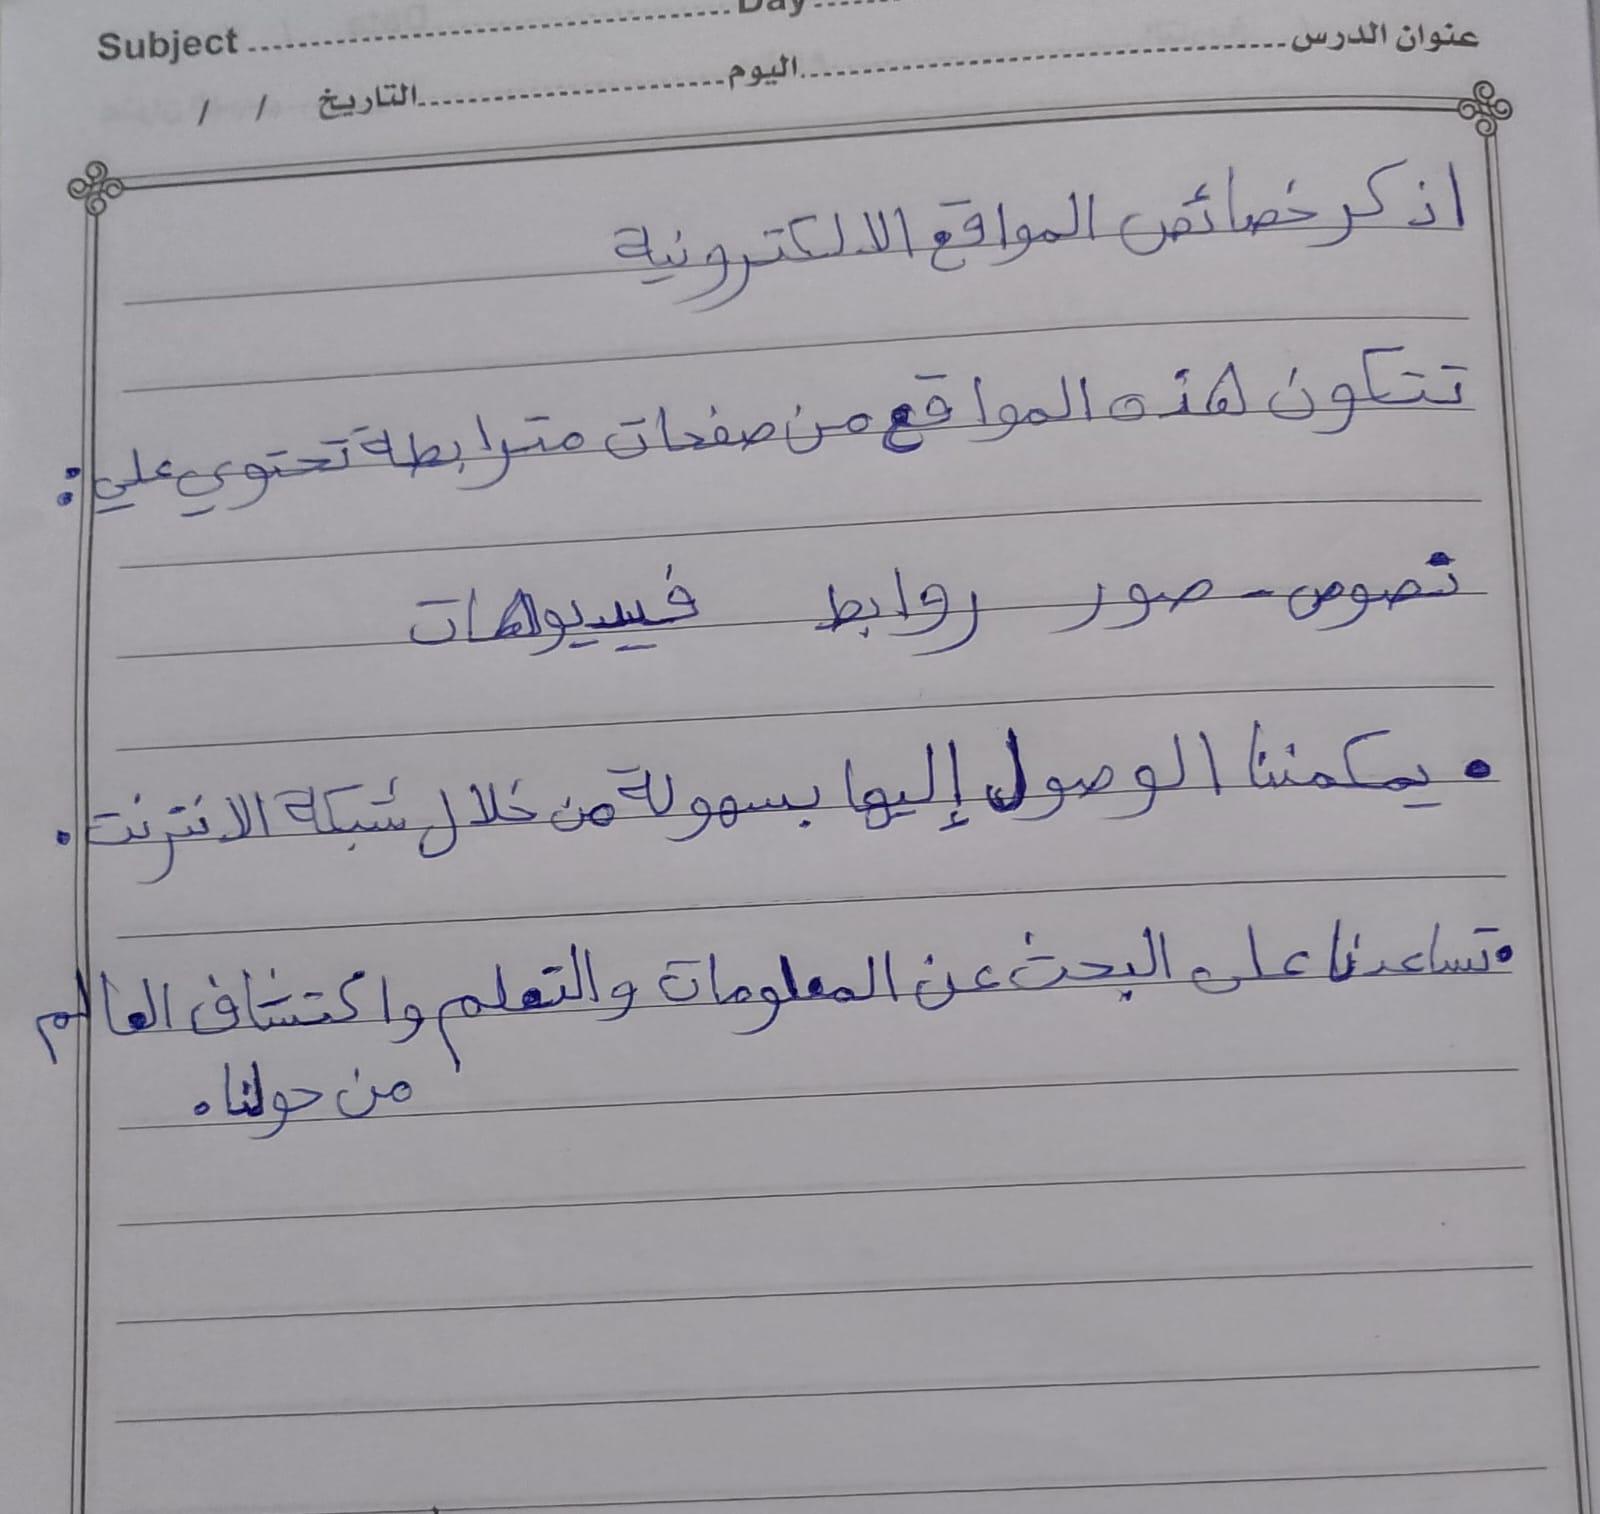 Subject ........ Day ........
عنوان الدرس ........ اليوم ........ التاريخ / /
اذكر خصائص المواقع الالكترونية
تتكون هذه المواقع من صفحات مترابطة تحتوي علي :
نصوص - صور روابط فيديوهات
• يمكننا الوصول إليها بسهولة من خلال شبكة الانترنت .
• تساعدنا على البحث عن المعلومات والتعلم واكتشاف العالم
من حولنا .